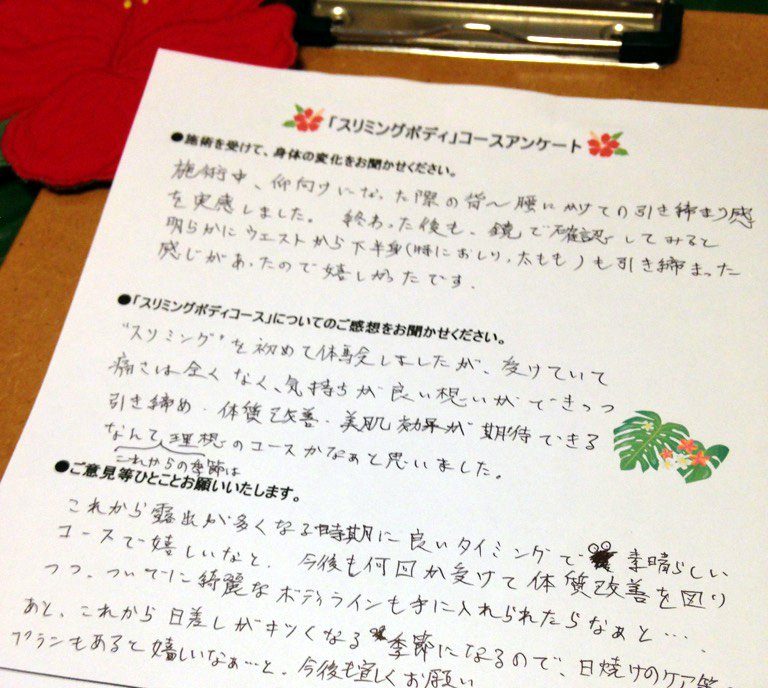 「スリミングボディ」コースアンケート
●施術を受けて、身体の変化をお聞かせください。
施術中、仰向けになった際の背〜腰にかけての引き締まり感
を実感しました。終わった後も、鏡で確認してみると
明らかにウエストから下半身(特におしり、太もも)も引き締まった
感じがあったので嬉しかったです。
●「スリミングボディコース」についてのご感想をお聞かせください。
"スリミング"を初めて体験しましたが、受けていて
痛さは全くなく、気持ちが良い想いができつつ
引き締め・体質改善・美肌効果が期待できる
なんて理想のコースかなぁと思いました。
これからの季節は
●ご意見等ひとことお願いいたします。
これから露出が多くなる時期に良いタイミングで素晴らしい
コースで嬉しいなと。今後も何回か受けて体質改善を図り
つつ、ついでに綺麗なボディラインも手に入れられたらなぁと…。
あと、これから日差しがキツくなる季節になるので、日焼けのケア等
プランもあると嬉しいなぁ…と。今後も宜しくお願い